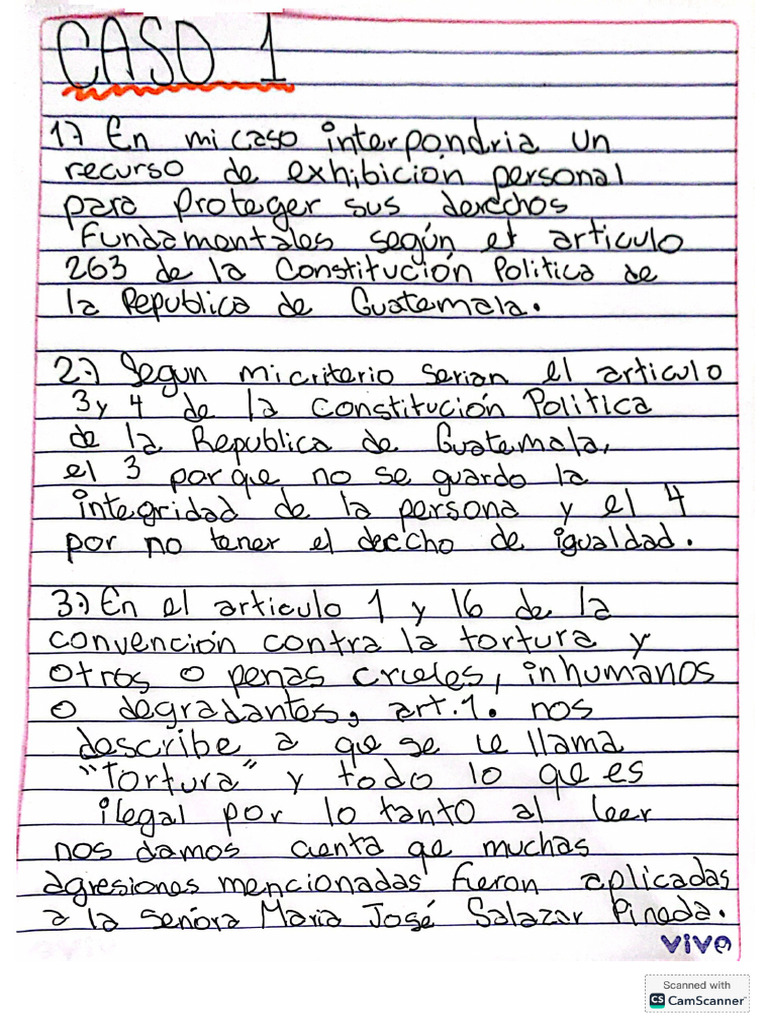 CASO 1
1) En mi caso interpondria un
recurso de exhibición personal
para proteger sus derechos
fundamentales según el articulo
263 de la Constitución Politica de
la Republica de Guatemala.
2.) Segun mi criterio serian el articulo
3 y 4 de la Constitución Politica
de la Republica de Guatemala,
el 3 por que no se guardo la
integridad de la persona y el 4
por no tener el derecho de igualdad.
3.) En el articulo 1 y 16 de la
convención contra la tortura y
otros o penas crueles, inhumanos
o degradantes, art.1. nos
describe a que se le llama
"Tortura" y todo lo que es
ilegal por lo tanto al leer
nos damos cuenta que muchas
agresiones mencionadas fueron aplicadas
a la señora Maria José Salazar Pineda.
vivo
Scanned with
CS CamScanner